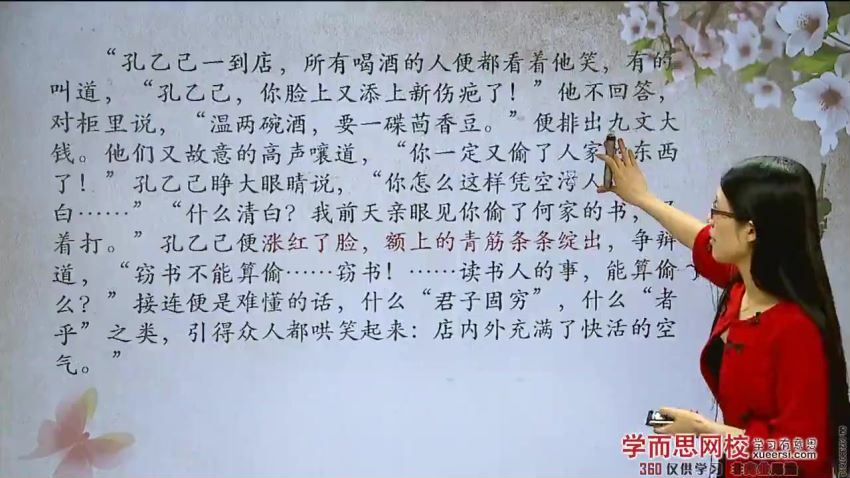 “孔乙己一到店，所有喝酒的人便都看着他笑，有的
叫道，“孔乙己，你脸上又添上新伤疤了！”他不回答，
对柜里说，“温两碗酒，要一碟茴香豆。”便排出九文大
钱。他们又故意的高声嚷道，“你一定又偷了人家 东西
了！”孔乙己睁大眼睛说，“你怎么这样凭空污人
白……”“什么清白？我前天亲眼见你偷了何家的书，
着打。”孔乙己便涨红了脸，额上的青筋条条绽出，争辩
道，“窃书不能算偷……窃书！……读书人的事，能算偷
么？”接连便是难懂的话，什么“君子固穷”，什么“者
乎”之类，引得众人都哄笑起来：店内外充满了快活的空
气。”
学而思网校 学习有意思
xueersi.com
360 仅供学习